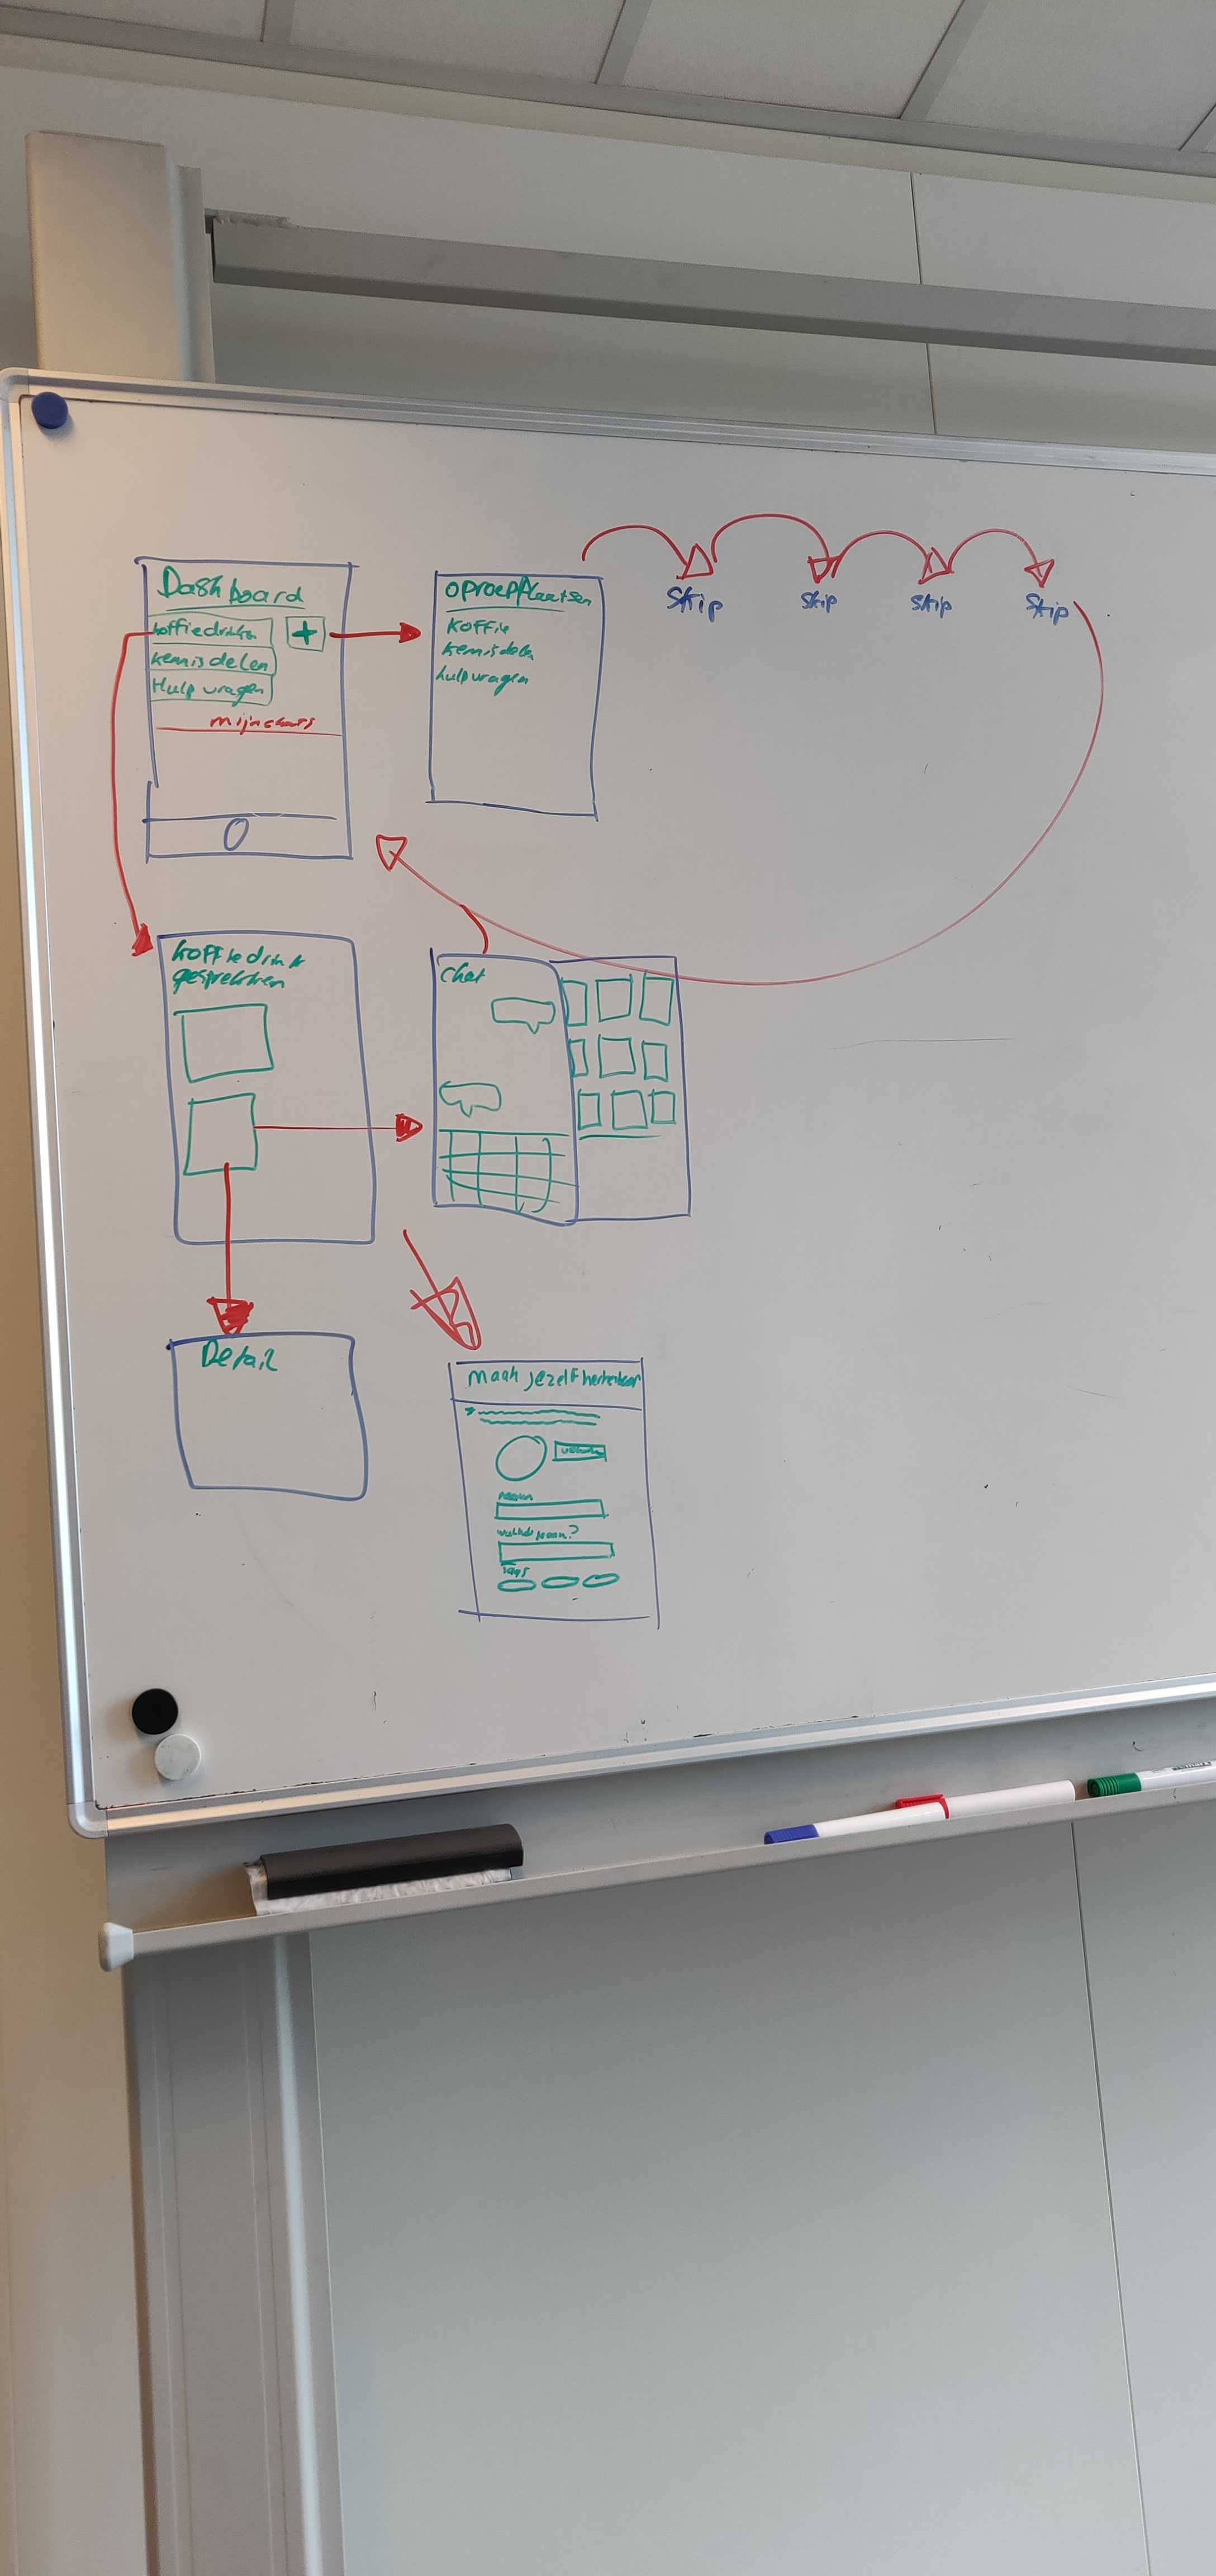 Dashboard
koffiedrinken
+
kennisdelen
Hulp vragen
mijn chats
oproep plaatsen
koffie
kennisdelen
hulpvragen
Skip
Skip
Skip
Skip
koffiedrink
gesprekken
chat
Detail
Maak jezelf herkenbaar
Tags